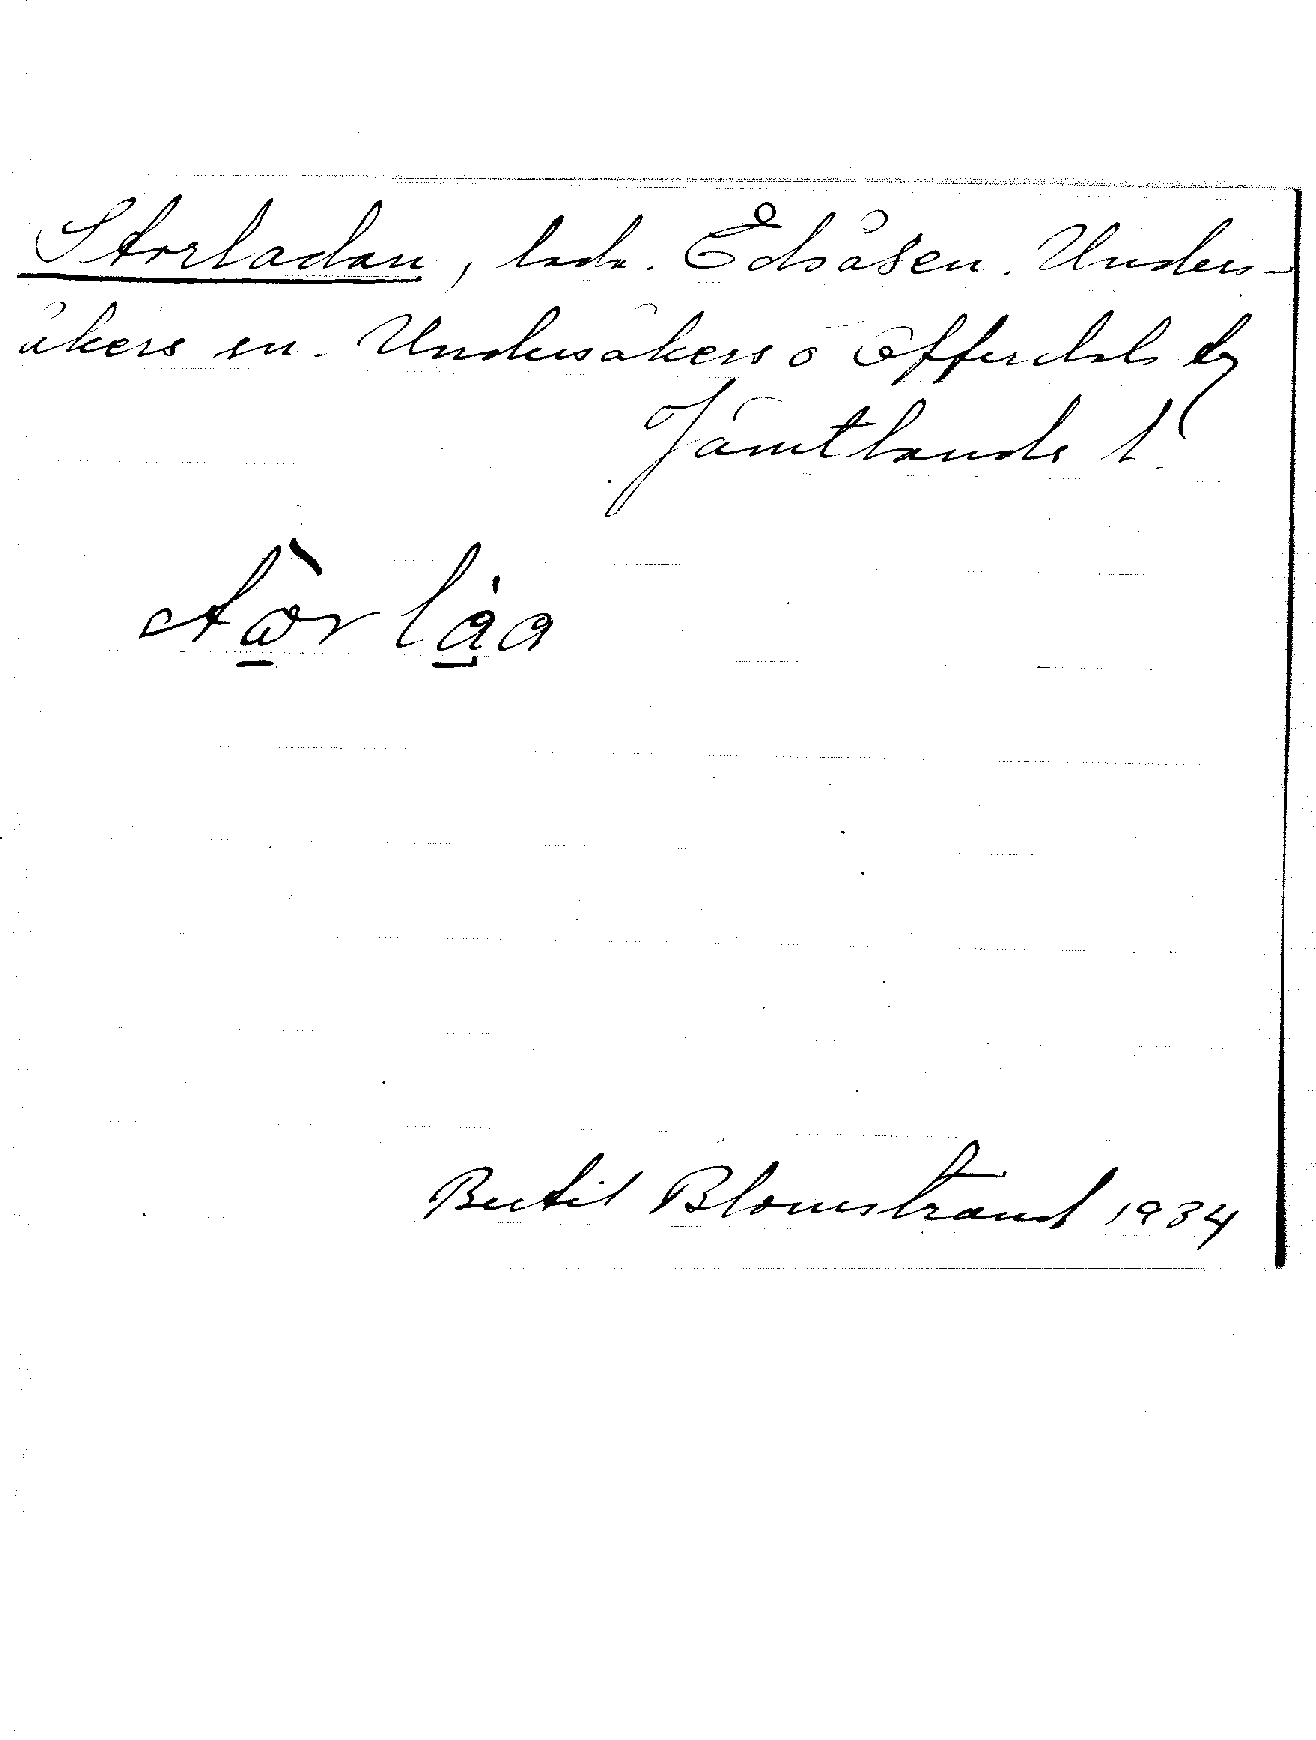 Storladan, lada. Edsåsen. Unders-
åkers sn. Undersåkers o Offerdals tg
Jämtlands l.
stώr låa
Bertil Blomstrand 1934